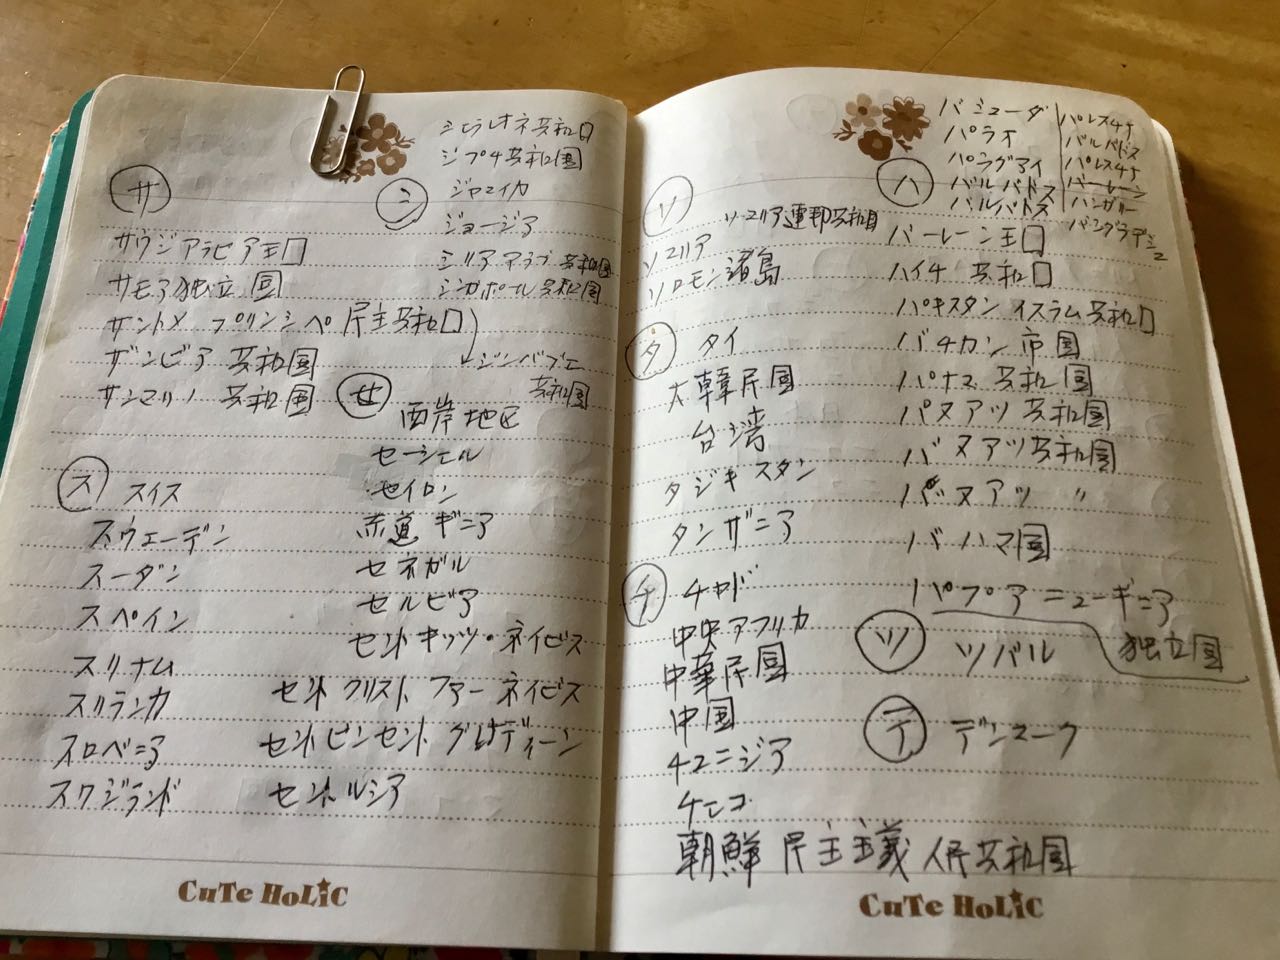 サ
サウジアラビア王囗
サモア独立国
サントメ プリンシペ 民主共和囗
ザンビア 共和国
サンマリノ 共和国
シ
シエラレオネ共和囗
ジブチ共和国
ジャマイカ
ジョージア
シリア アラブ 共和国
シンガポール共和国
ジンバブエ
共和国
ス
スイス
スウェーデン
スーダン
スペイン
スリナム
スリランカ
スロベニア
スワジランド
セ
西岸地区
セーシェル
セイロン
赤道ギニア
セネガル
セルビア
セントキッツ・ネイビス
セント クリスト ファー ネイビス
セントビンセント グレナディーン
セントルシア
CuTe HoLiC
ソ
ソマリア連邦共和国
ソマリア
ソロモン諸島
タ
タイ
大韓民国
台湾
タジキスタン
タンザニア
チ
チャド
中央アフリカ
中華民国
中国
チュニジア
チェコ
朝鮮 民主主義 人民共和国
ハ
バミューダ
パラオ
パラグアイ
バルバドス
バルバドス
パレスチナ
バルバドス
パレスチナ
バーレーン
ハンガリー
バングラデシュ
バーレーン王囗
ハイチ 共和囗
パキスタン イスラム共和囗
バチカン 市国
パナマ 共和国
バヌアツ 共和国
バヌアツ共和国
バヌアツ 〃
バハマ国
パプアニューギニア
独立国
ツ
ツバル
テ
デンマーク
CuTe HoLiC